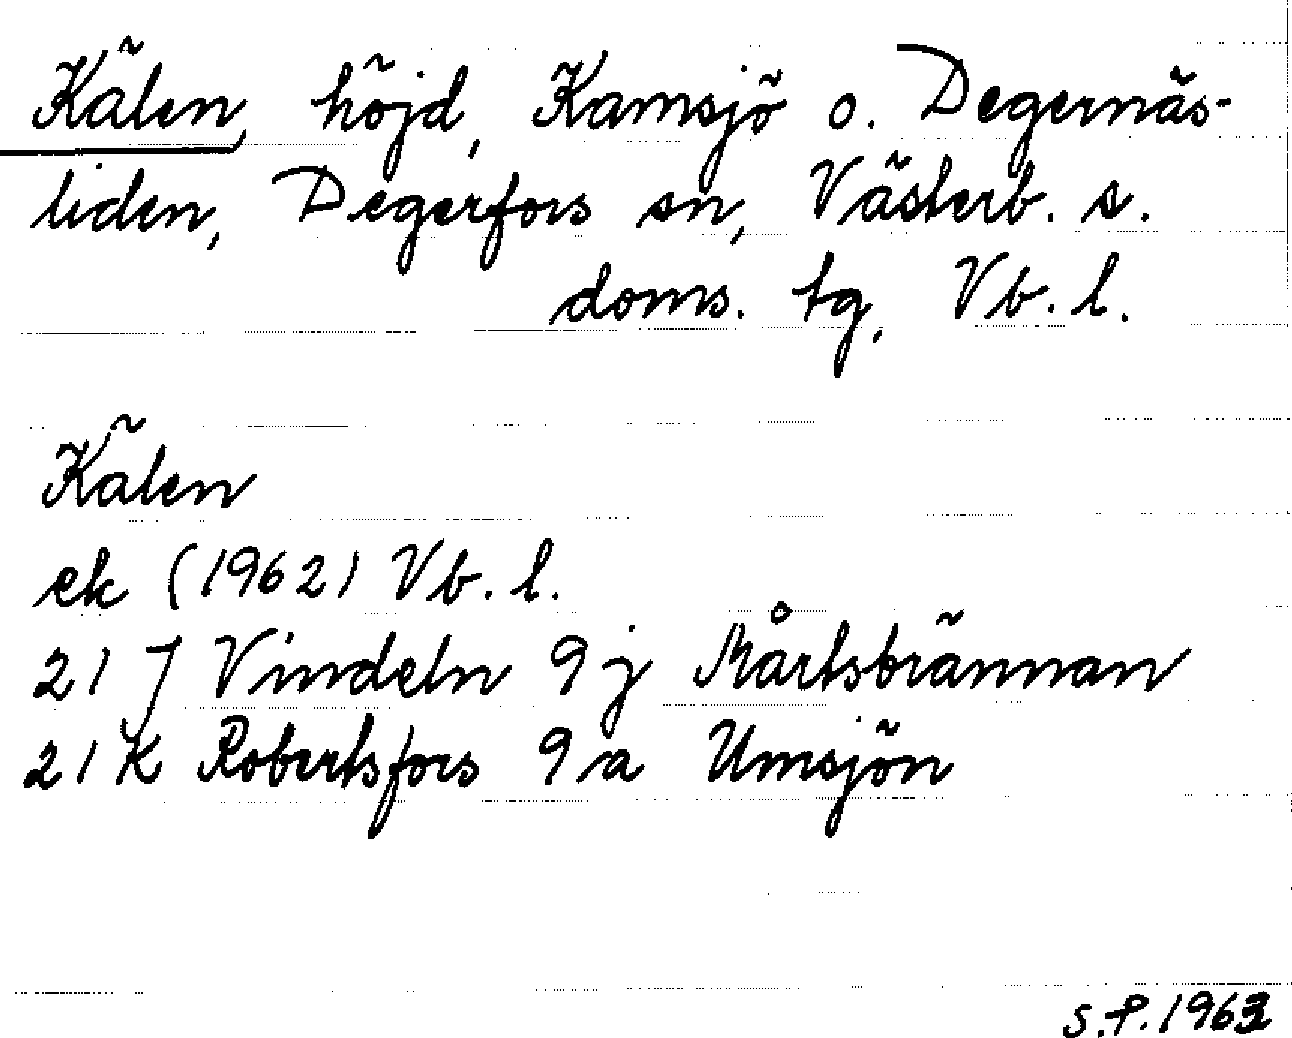 Kälen, höjd, Kamsjö o. Degernäs-
liden, Degerfors sn, Västerb. s.
doms. tg, Vb. l.
Kälen
ek (1962) Vb. l.
21 J Vindeln 9 j Mårtsbrännan
21 K Robertsfors 9 a Umsjön
S.P. 1963